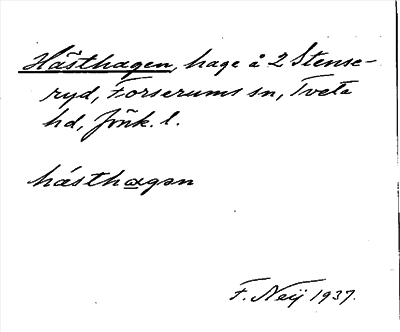 Hästhagen, hage å 2 Stense-
ryd, Forserums sn, Tveta
hd, Jönk. l.
hásthagən
F. Neij 1937.